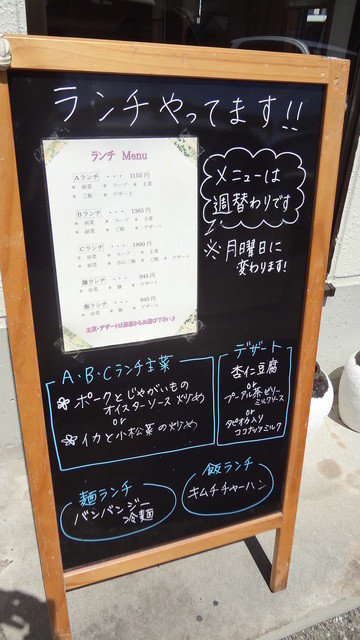 ランチやってます!!
ランチ Menu
Aランチ ・・・ 1155円
＊ 前菜 ＊ スープ ＊ 主菜
＊ ご飯 ＊ デザート
Bランチ ・・・ 1365円
＊ 前菜 ＊ スープ ＊ 主菜
＊ 副菜 ＊ ご飯 ＊ デザート
Cランチ ・・・ 1890円
＊ 前菜 ＊ スープ ＊ 主菜
＊ 副菜 ＊ ご飯 ＊ デザート
麺ランチ ・・・ 945円
＊ 前菜 ＊ 麺 ＊ デザート
飯ランチ ・・・ 945円
＊ 前菜 ＊ 飯 ＊ デザート
主菜・デザートは黒板からお選び下さい♪
メニューは
週替わりです
※月曜日に
変わります!
A・B・Cランチ主菜
ポークとじゃがいもの
オイスターソース炒め
or
イカと小松菜の炒め
デザート
杏仁豆腐
or
プーアル茶ゼリー
ミルクソース
or
タピオカ入り
ココナッツミルク
麺ランチ
バンバンジー
冷麺
飯ランチ
キムチチャーハン